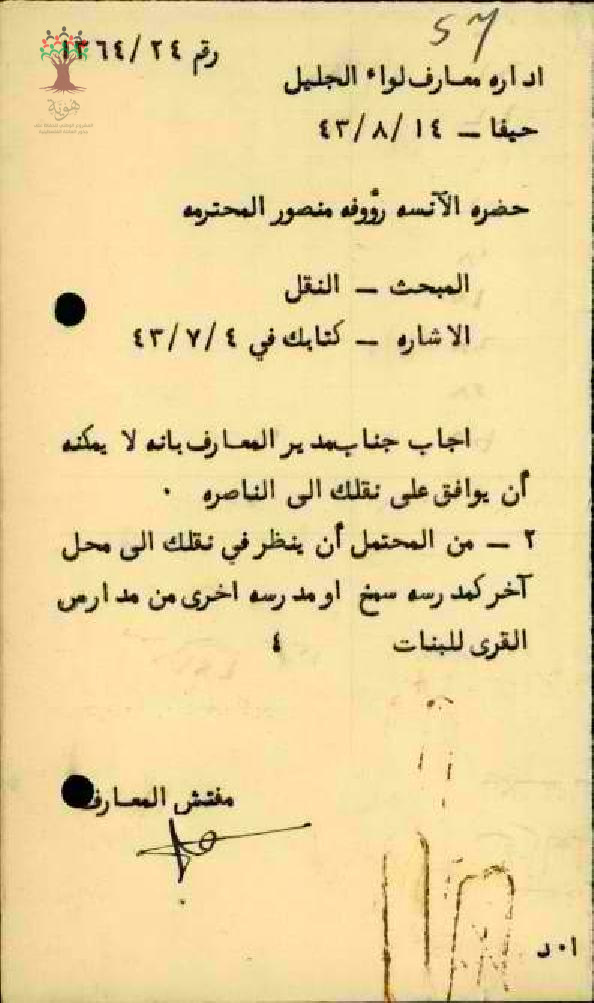 57
رقم ١٣٦٤/٢٤
هوية
اداره معارف لواء الجليل
حيفا – ٤٣/٨/١٤
حضره الآنسه رؤوفه منصور المحترمه
المبحث – النقل
الاشاره – كتابك في ٤٣/٧/٤
اجاب جناب مدير المعارف بانه لا يمكنه
أن يوافق على نقلك الى الناصره ٠
٢ – من المحتمل أن ينظر في نقلك الى محل
آخر كمدرسه سمخ او مدرسه اخرى من مدارس
القرى للبنات ٤
مفتش المعارف
ا٠د